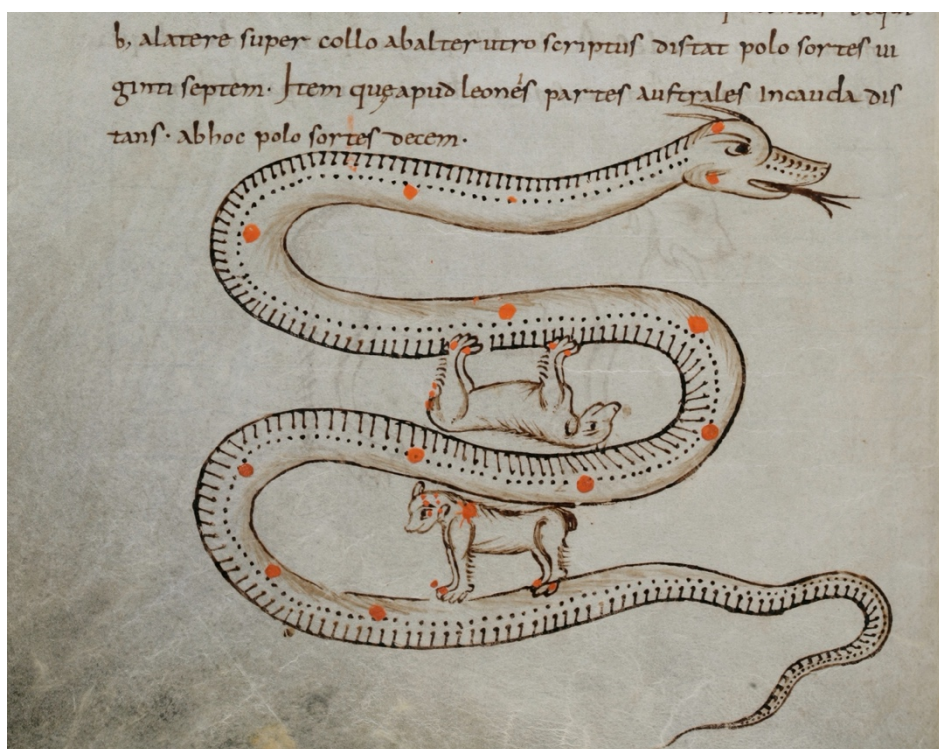 b, alatere super collo abalterutro scriptus distat polo sortes ui
ginti septem. Item quę apud leonés partes australes Incauda dis
tans. abhoc polo sortes decem.